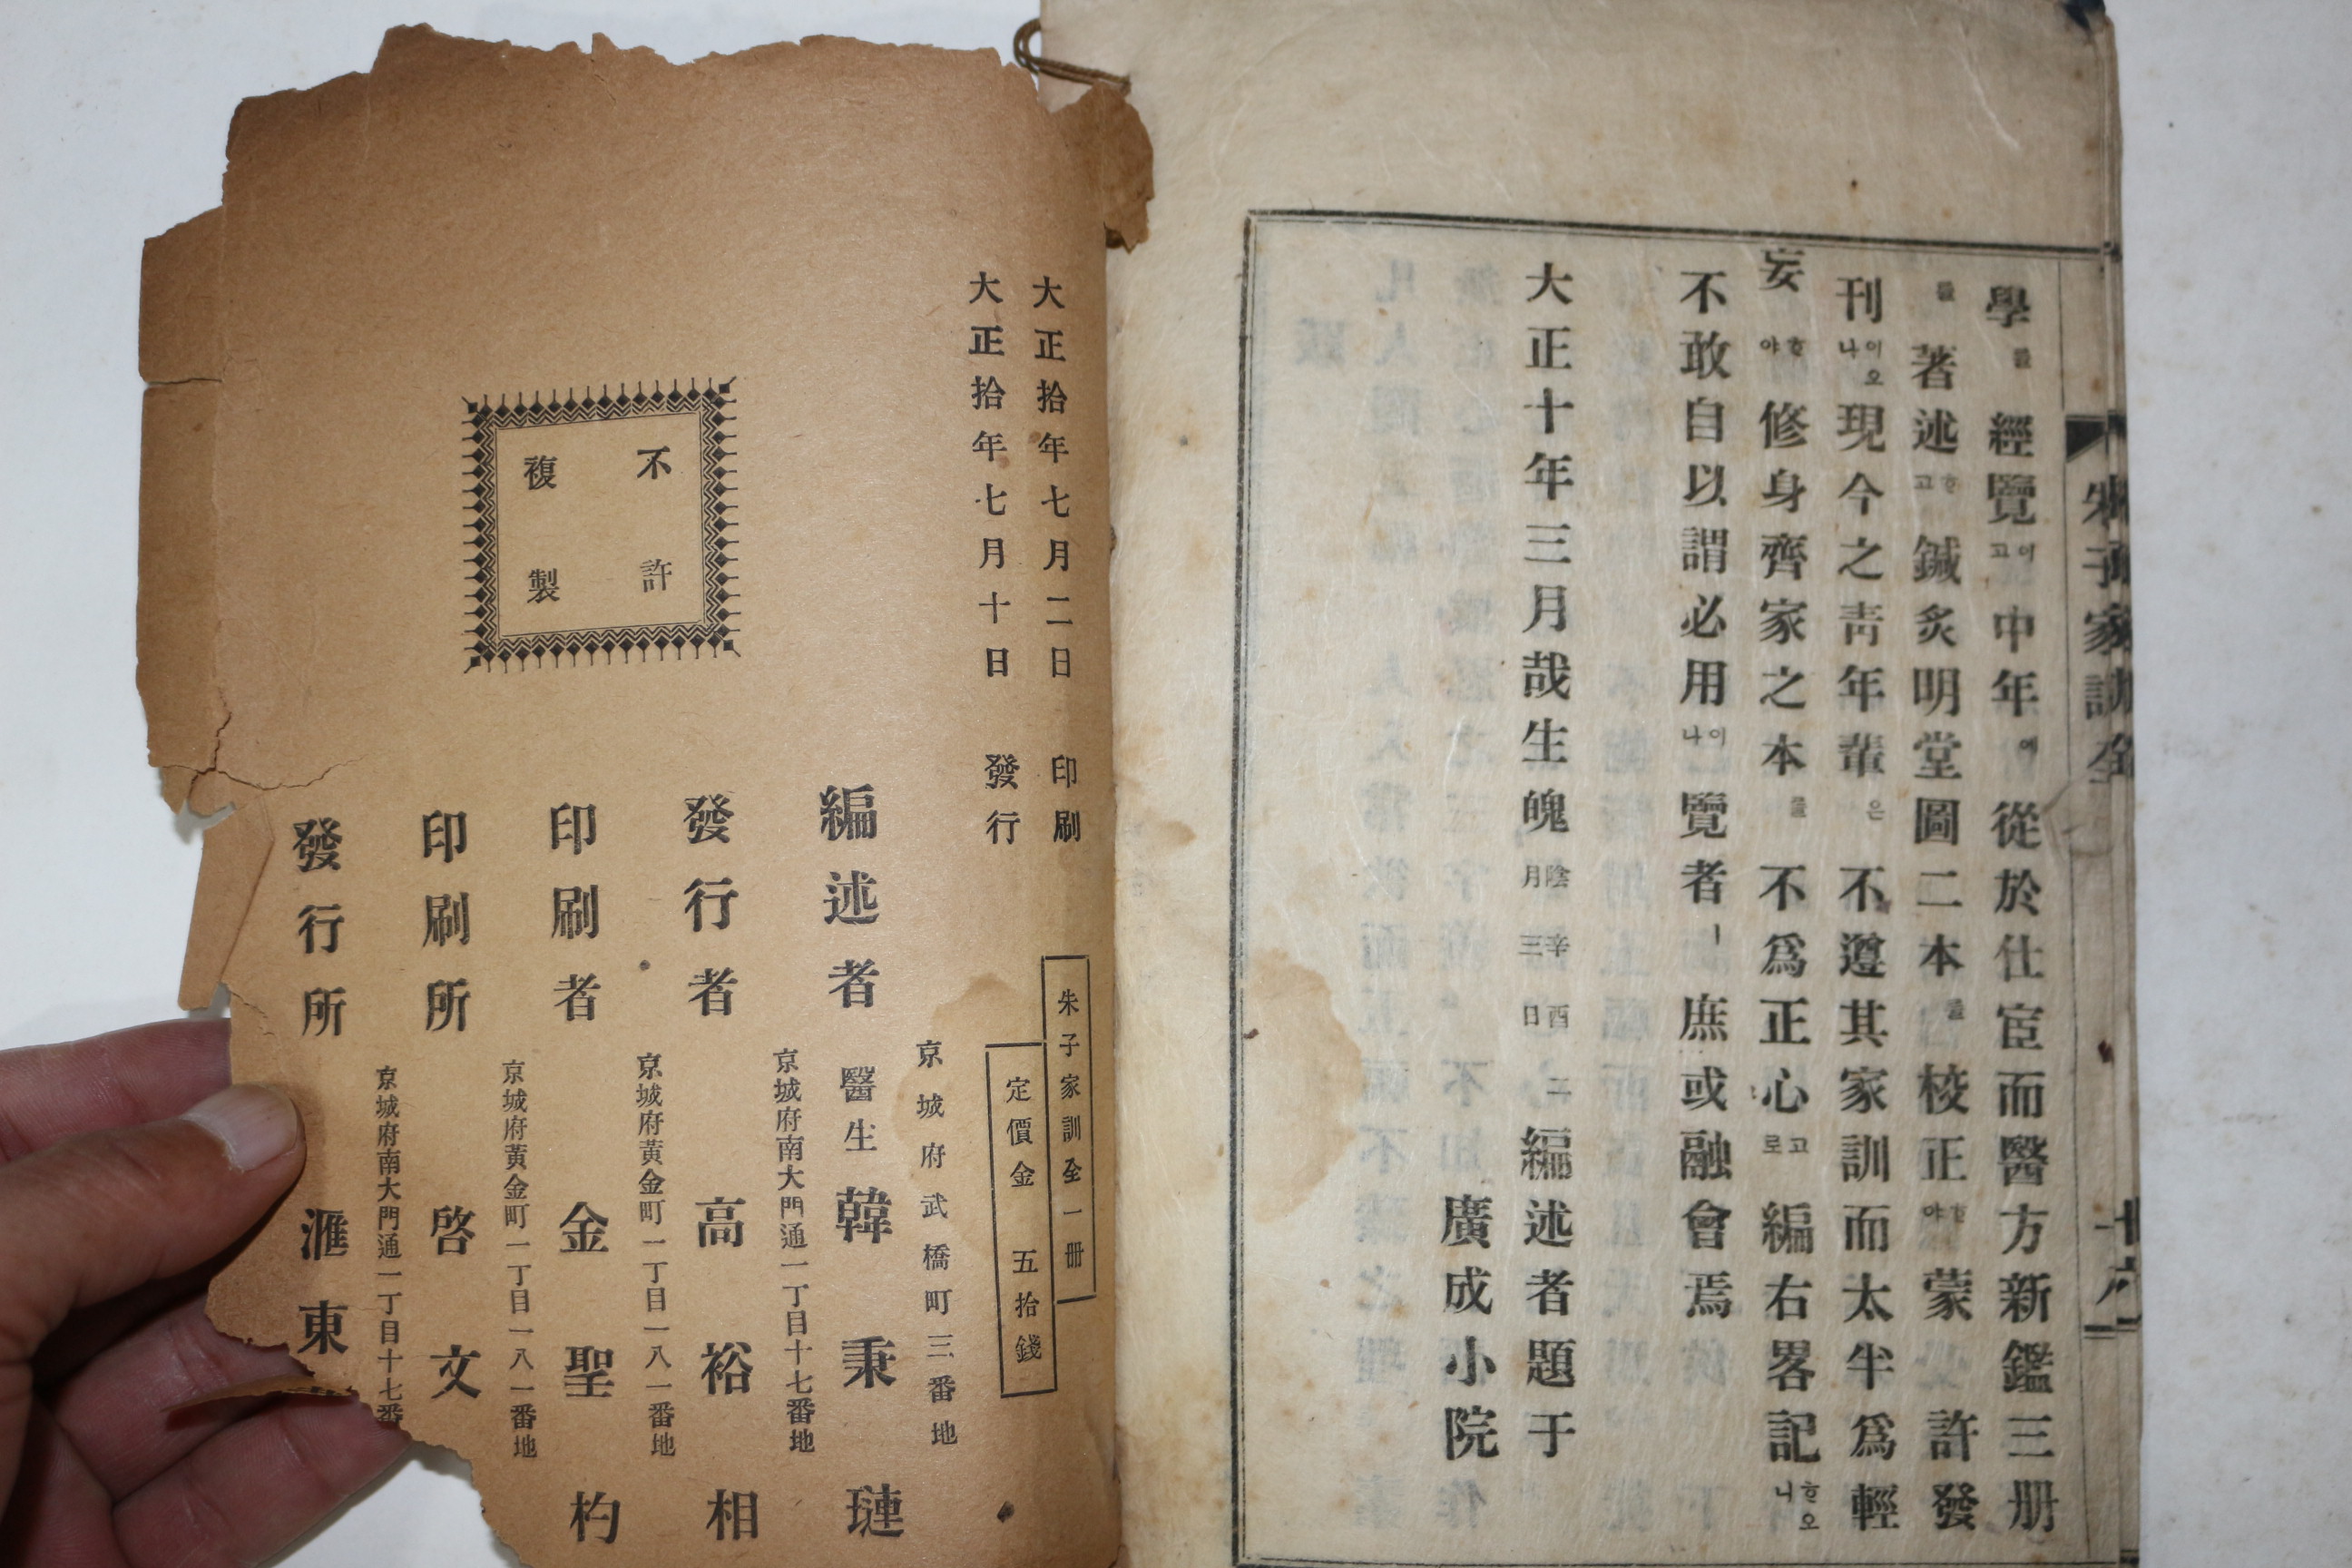 朱子家訓全
學를經覽이고中年에從於仕宦而醫方新鑑三册
를著述하고鍼灸明堂圖二本를校正하야蒙許發
刊이오나現今之靑年輩은不遵其家訓而太半爲輕
妄하야修身齊家之本를不爲正心고로編右畧記하오니
不敢自以謂必用이나覽者ㅣ庶或融會焉
大正十年三月哉生魄陰辛酉二月三日編述者題于
廣成小院
大正拾年七月二日 印刷
大正拾年七月十日 發行
朱子家訓全一册
定價金 五拾錢
不許
複製
京城府武橋町三番地
編述者 醫生 韓秉璉
京城府南大門通一丁目十七番地
發行者 高裕相
京城府黃金町一丁目一八一番地
印刷者 金聖杓
京城府黃金町一丁目一八一番地
印刷所 啓文
京城府南大門通一丁目十七番
發行所 滙東